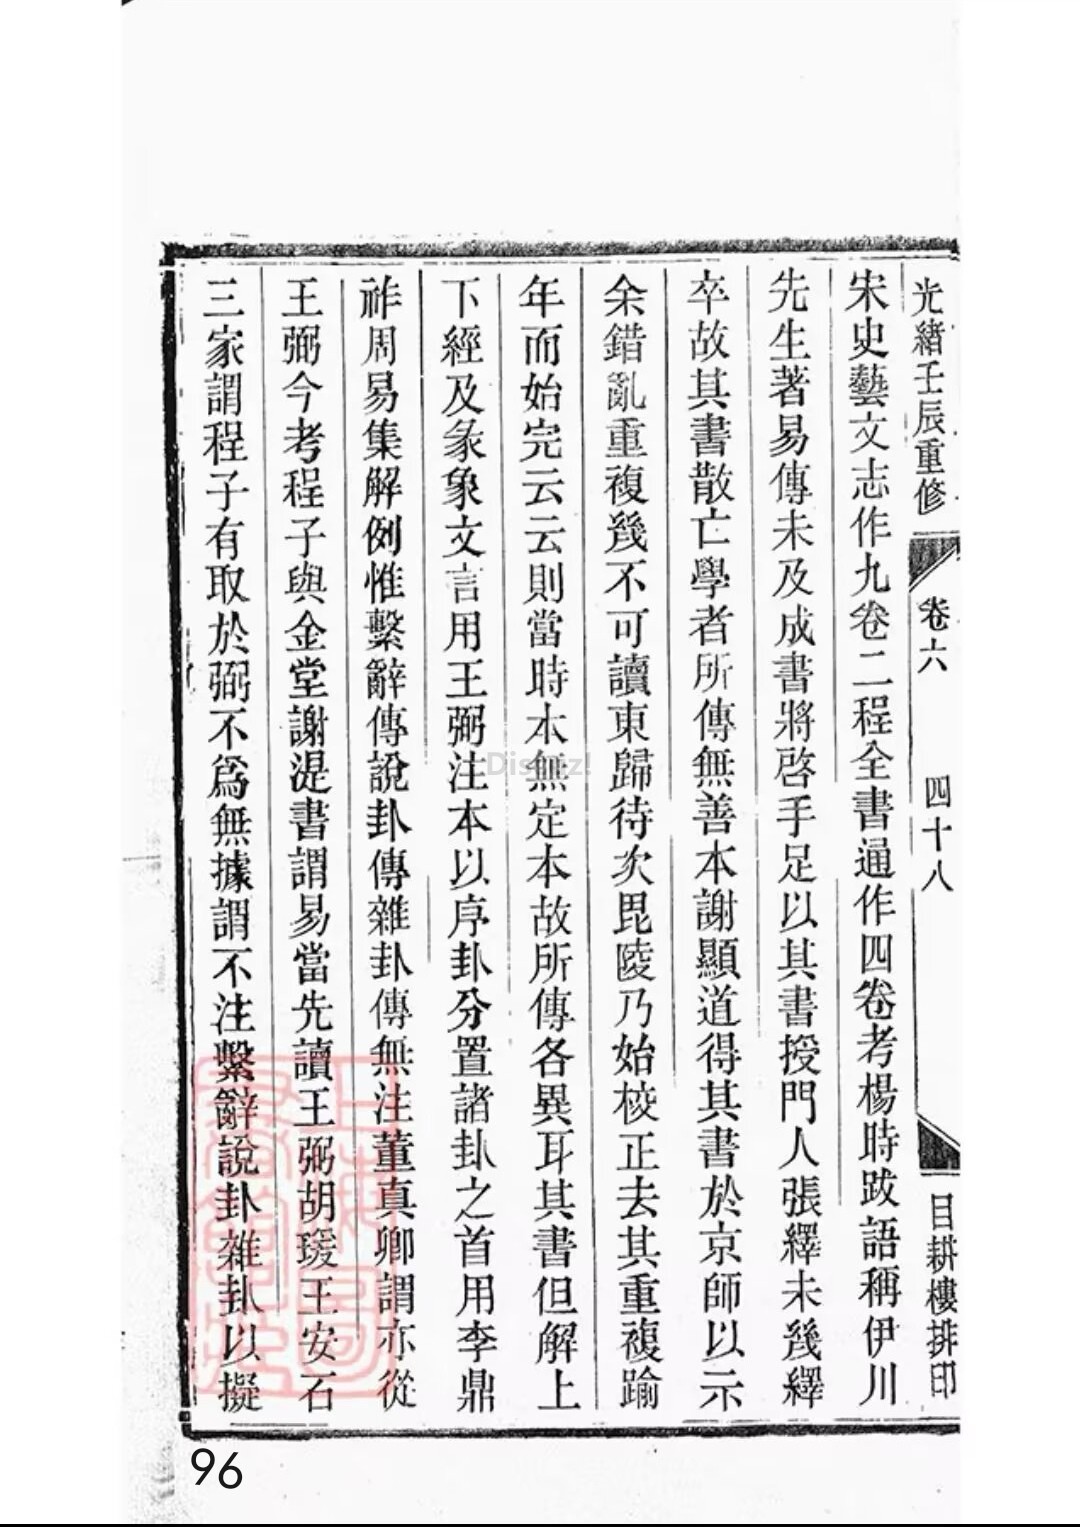 光緒壬辰重修 卷六 四十八 目耕樓排印
宋史藝文志作九卷二程全書通作四卷考楊時跋語稱伊川
先生著易傳未及成書將啓手足以其書授門人張繹未幾繹
卒故其書散亡學者所傳無善本謝顯道得其書於京師以示
余錯亂重複幾不可讀東歸待次毘陵乃始校正去其重複踰
年而始完云云則當時本無定本故所傳各異耳其書但解上
下經及彖象文言用王弼注本以序卦分置諸卦之首用李鼎
祚周易集解例惟繫辭傳說卦傳雜卦傳無注董真卿謂亦從
王弼今考程子與金堂謝湜書謂易當先讀王弼胡瑗王安石
三家謂程子有取於弼不爲無據謂不注繫辭說卦雜卦以擬
96